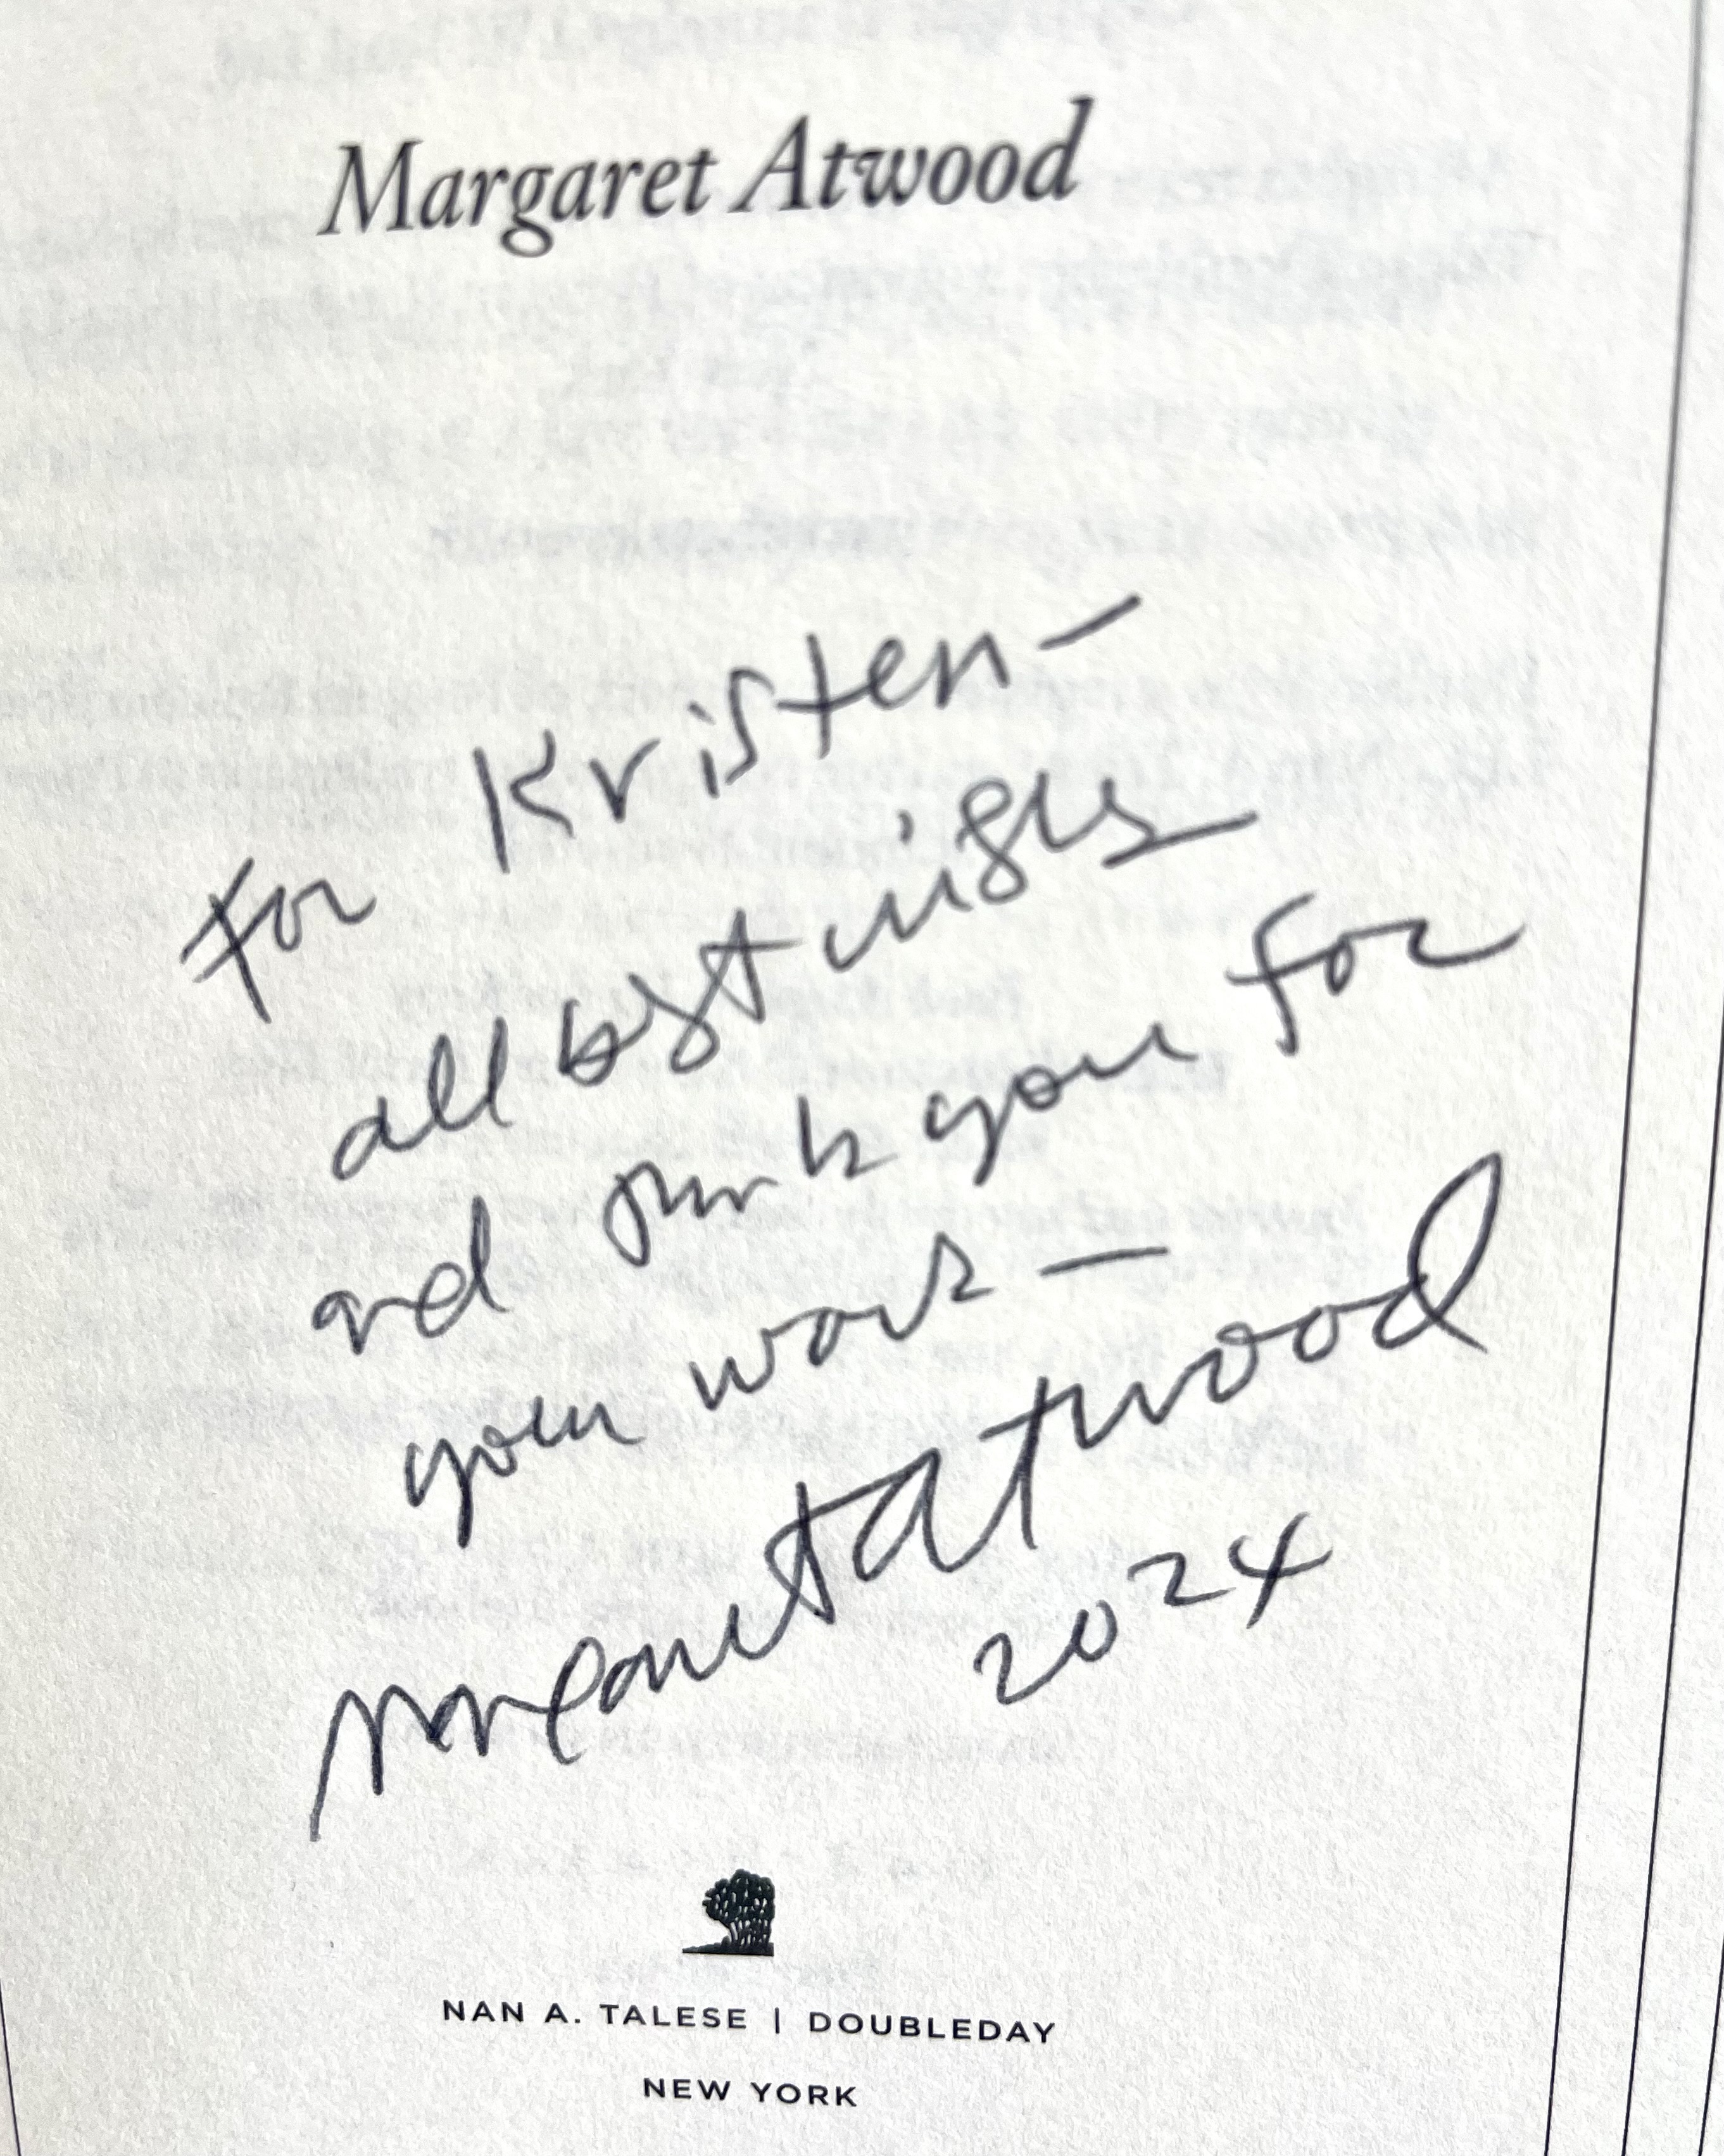 Margaret Atwood
For Kristen —
all best wishes
and thank you for
your work —
Margaret Atwood
2024
NAN A. TALESE | DOUBLEDAY
NEW YORK